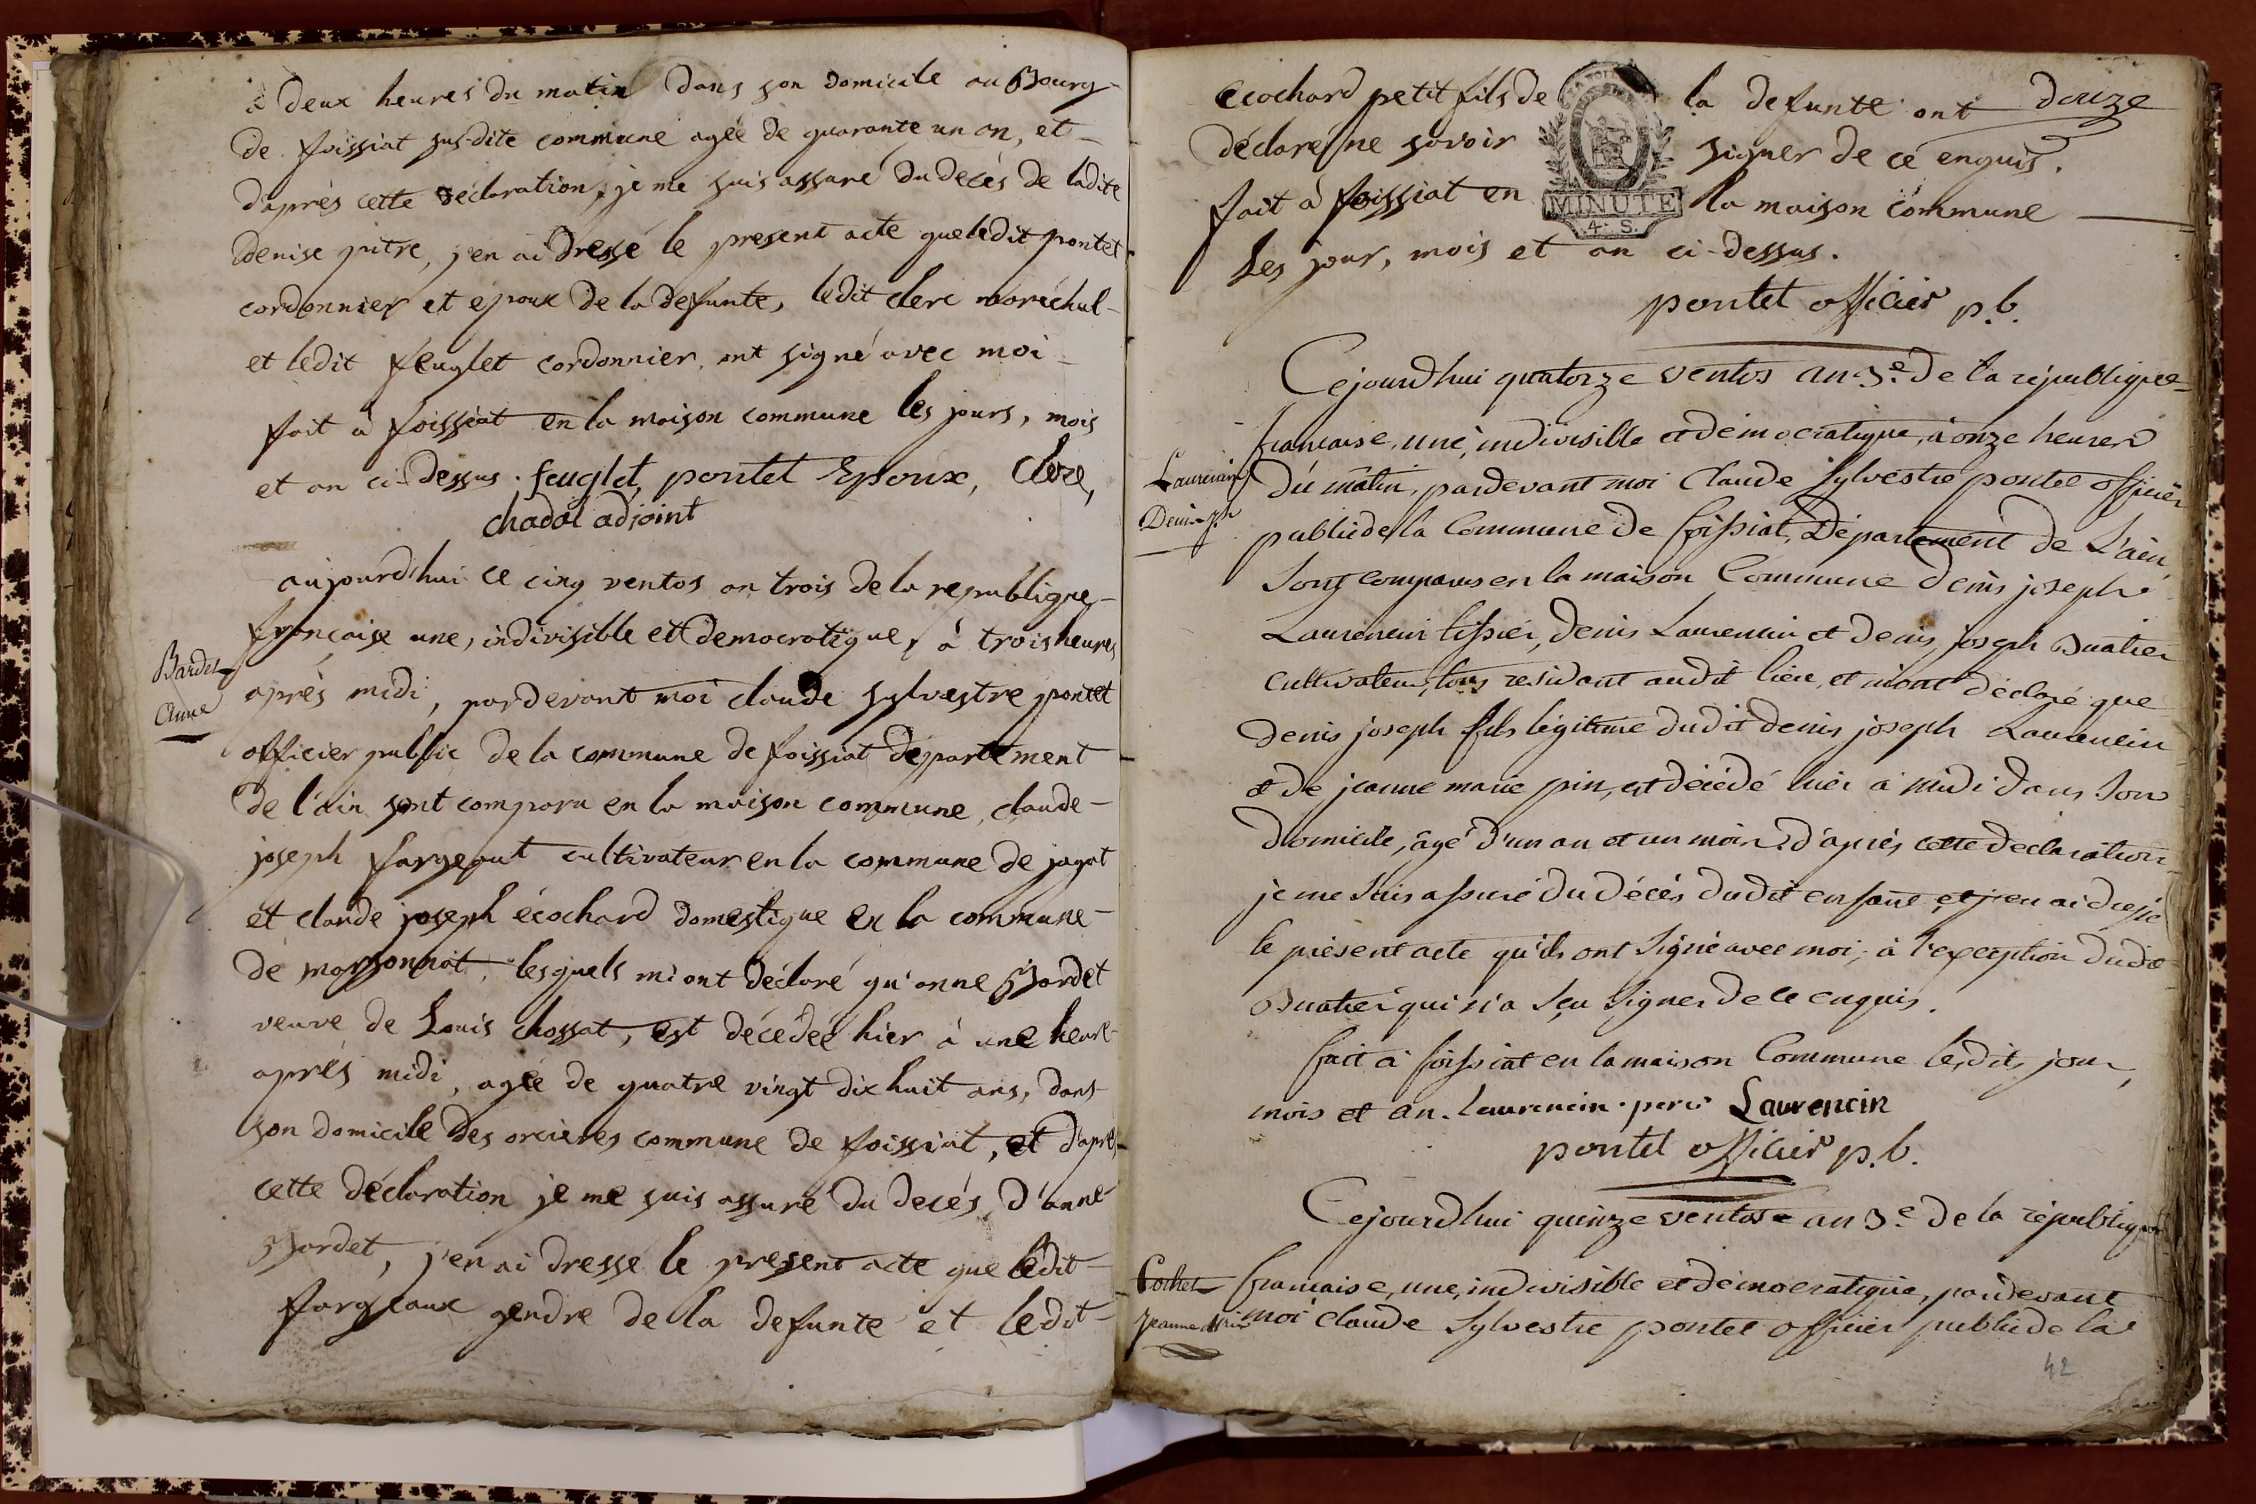 à deux heures du matin dans son domicile au Bourg
de foissiat sus-dite commune agée de quarante un an, et
d'après cette déclaration, je me suis assuré du decès de ladite
denise pitre, j'en ai dressé le present acte que ledit pontet
cordonnier et epoux de la defunte, ledit clerc maréchal
et ledit feuglet cordonnier, ont signé avec moi
fait à foissiat en la maison commune les jours, mois
et an ci-dessus. feuglet, pontet Epoux, Clerc,
chadal adjoint
aujourd'hui ce cinq ventos an trois de la republique
Bardet
Anne
française une, indivisible et democratique, à trois heures
après midi, pardevant moi claude sylvestre pontet
officier public de la commune de foissiat département
de l'ain sont comparu en la maison commune, claude
joseph fargeaut cultivateur en la commune de jayat
et claude joseph écochard domestique en la commune
de marsonnat, lesquels m'ont déclaré qu'anne Bardet
veuve de Louis chossat, est décédée hier à une heure
après midi, agée de quatre vingt dix huit ans, dans
son domicile des orcières commune de foissiat, et d'après
cette déclaration je me suis assuré du decès, d'anne
Bardet, j'en ai dresse le present acte que ledit
fargeaux gendre de la defunte et ledit
ecochard petit fils de la defunte ont douze
déclaré ne savoir signer de ce enquis.
fait à foissiat en la maison commune
MINUTE
4. S.
Les jour, mois et an ci-dessus.
pontet officier p.b.
Cejourd'hui quatorze ventos an 3.e de la république
française, une, indivisible et démocratique, à onze heures
Laurencin
Denis jh
du matin, pardevant moi Claude Sylvestre pontet officier
public de la Commune de foissiat, Département de L'ain,
Sont comparus en la maison Commune denis joseph
Laurencin tissier, denis Laurencin et denis joseph Buatier
cultivateur, tous residant audit lieu, et m'ont déclaré que
denis joseph fils légitime dudit denis joseph Laurencin
et de jeanne marie pin, est décédé hier à midi dans Son
domicile, âgé d'un an et un mois, d'après cette declaration
je me Suis assuré du décès dudit enfant, et j'en ai dressé
le présent acte qu'ils ont Signé avec moi, à l'exception dudit
Buatier qui n'a Sçu Signer de ce enquis.
fait à foissiat en la maison Commune lesdits jour,
mois et an. laurencin père Laurencin
pontet officier p.b.
Cejourd'hui quinze ventose an 3.e de la république
Cochet
jeanne Mrie
française, une, indivisible et démocratique, pardevant
moi Claude Sylvestre pontet officier public de la
42